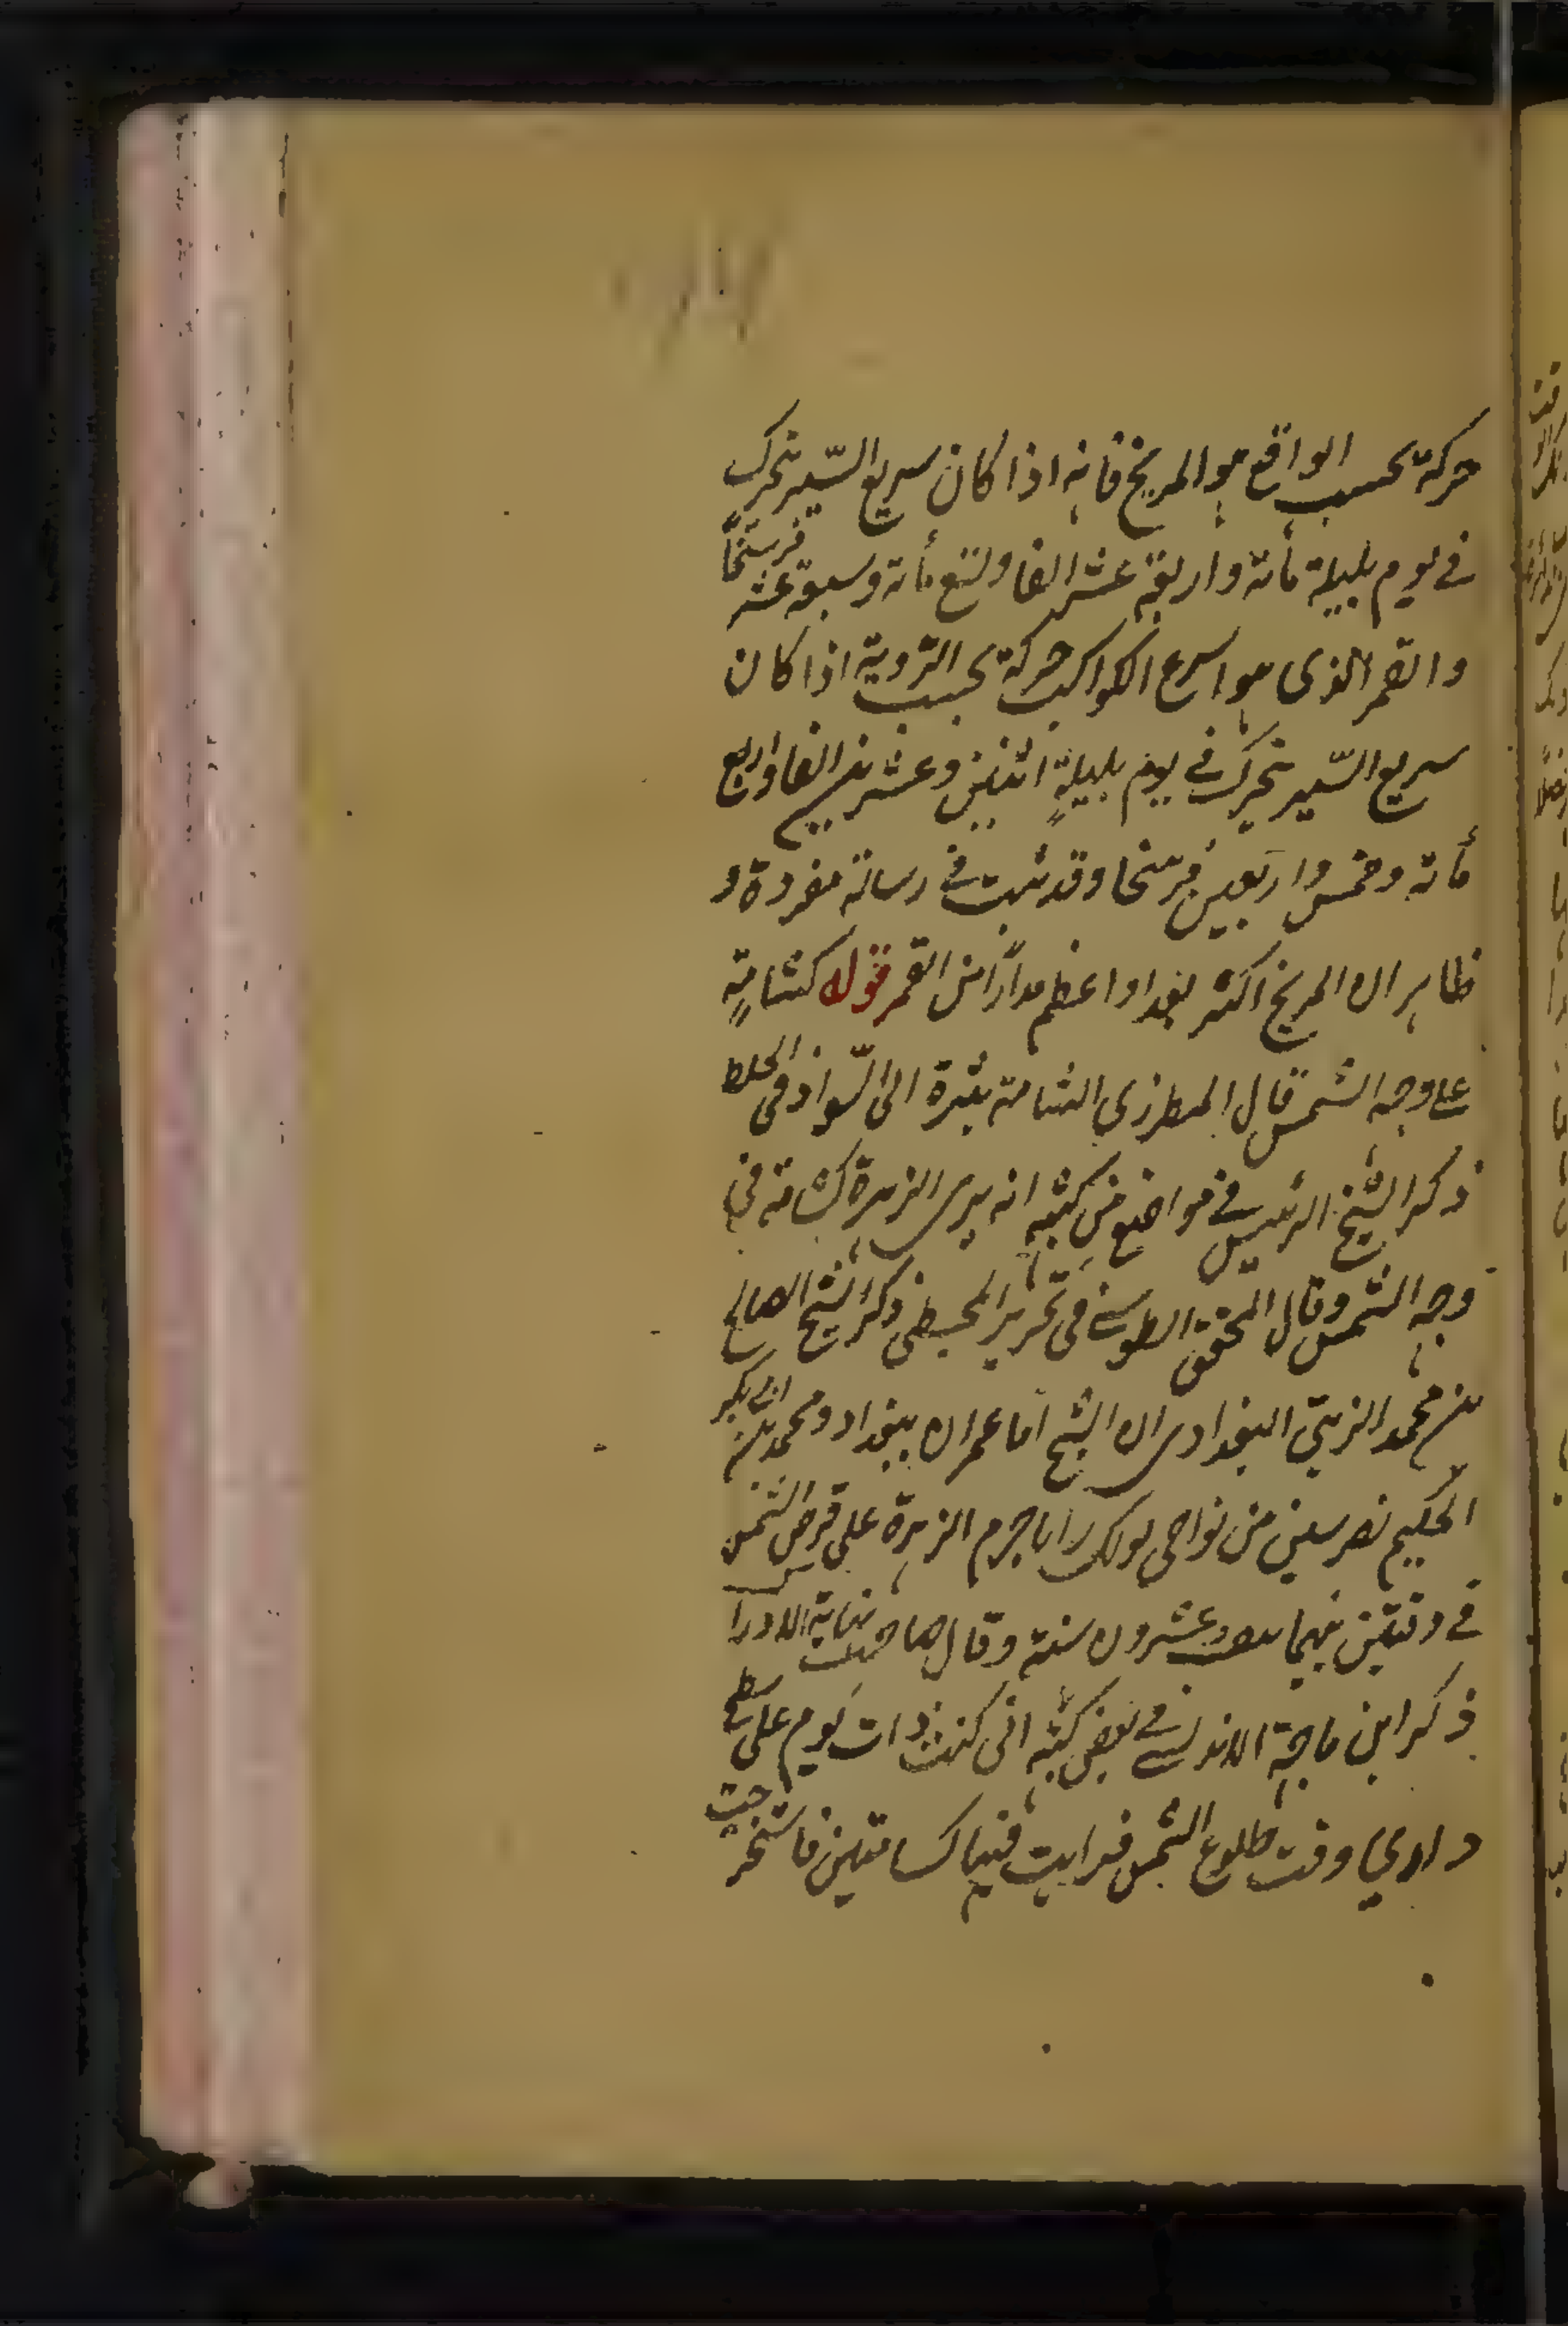 حركة بحسب الواقع هو المريخ فانه اذا كان سريع السّير يتحرك
فى يوم بليلة مأته واربعة عشر الفا وتسع مأته وسبعة عشر فرسخًا
والقمر الذى هو اسرع الكواكب حركة بحسب الرّوية اذا كان
سريع السّير يتحرك فى يوم بليلةٍ اثنين وعشرين الفا واربع
مأته وخمس واربعين فرسخا وقد ثبت فى رسالة مفردة و
ظاهر ان المريخ اكثر بعدا واعظم مدارًا من القمر قوله كشامةٍ
على وجه الشمس قال المطرزى الشامة بثرة الى السّواد فى
ذكر الشيخ الرئيس فى مواضع من كتبه انه يرى الزهرة كشامة فى
وجه الشمس وقال المحقق الطوسى فى تحرير المجسطى ذكر الشيخ الصالح
بن محمد الزينى البغدادى ان الشيخ ابا عمران ببغداد ومحمد بن ابى بكر
الحكيم من نواحى رأيا جرم الزهرة على قرص الشمس
فى وقتين بينهما وعشرون سنة وقال صاحب نهاية الادرا
ذكر ابن ماجة الاندلسى فى بعض كتبه انى كنت ذات يوم على سطح
دارى وقت طلوع الشمس فرايت فيها كشامتين فاستخرجت